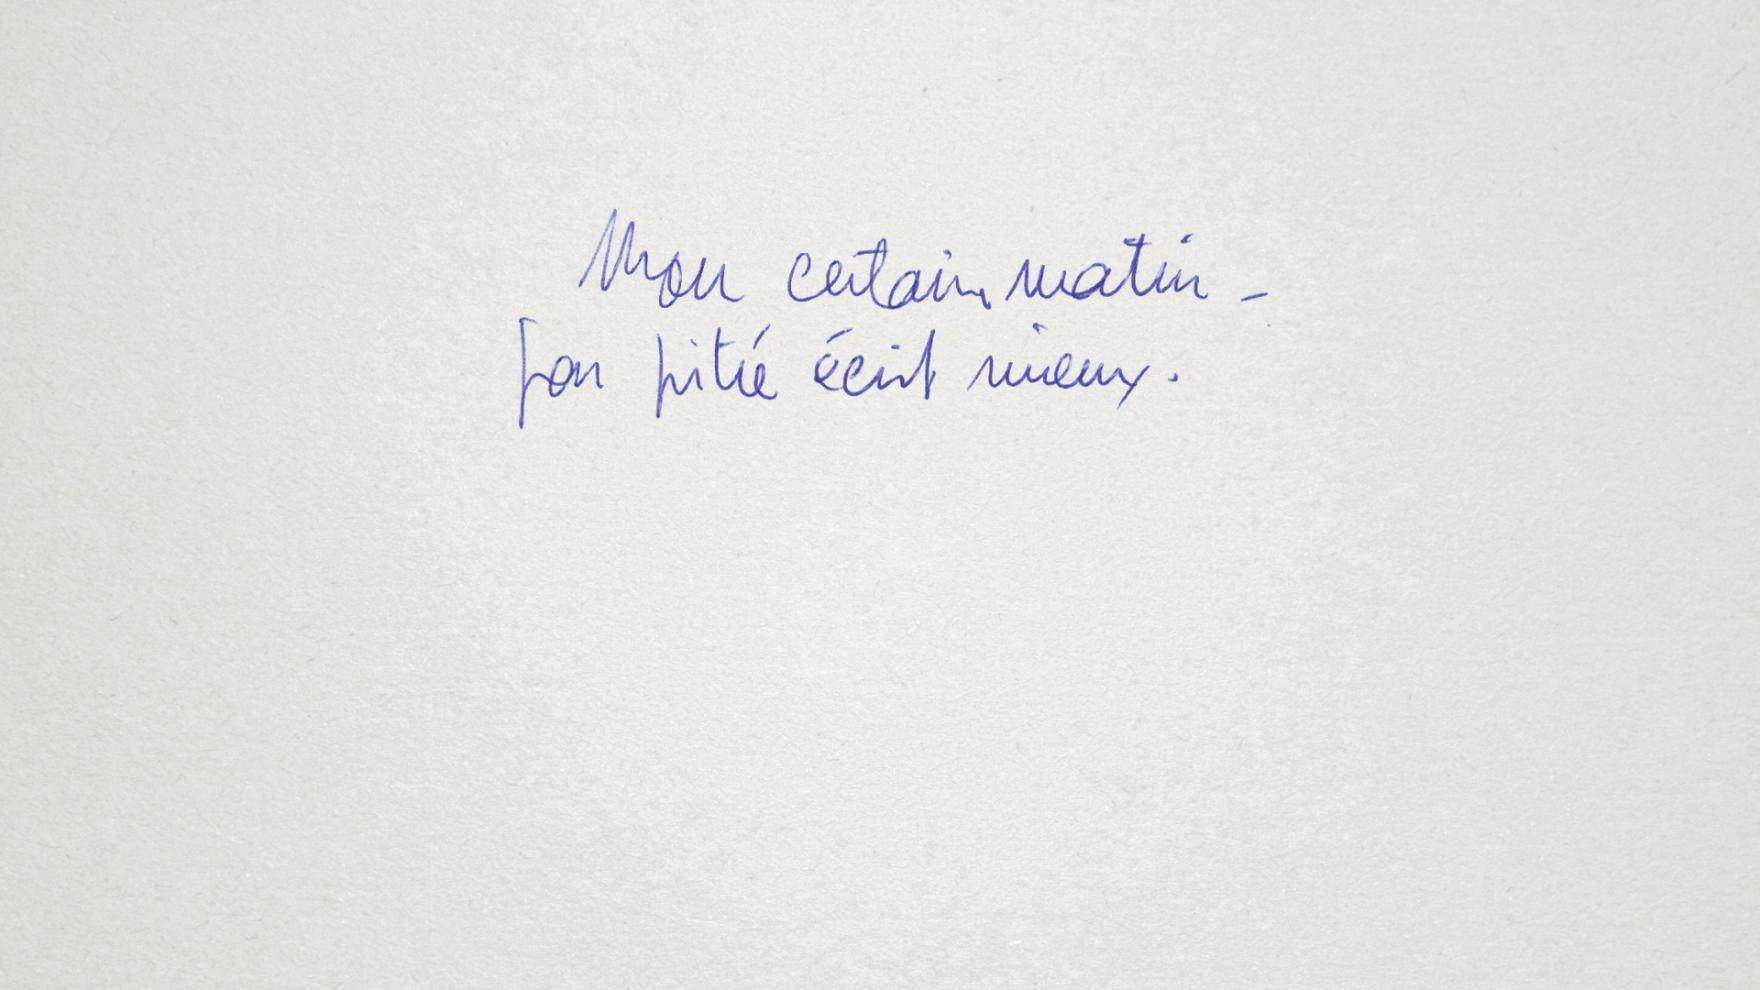 Mon certain matin -
Son pitié écrit mieux.